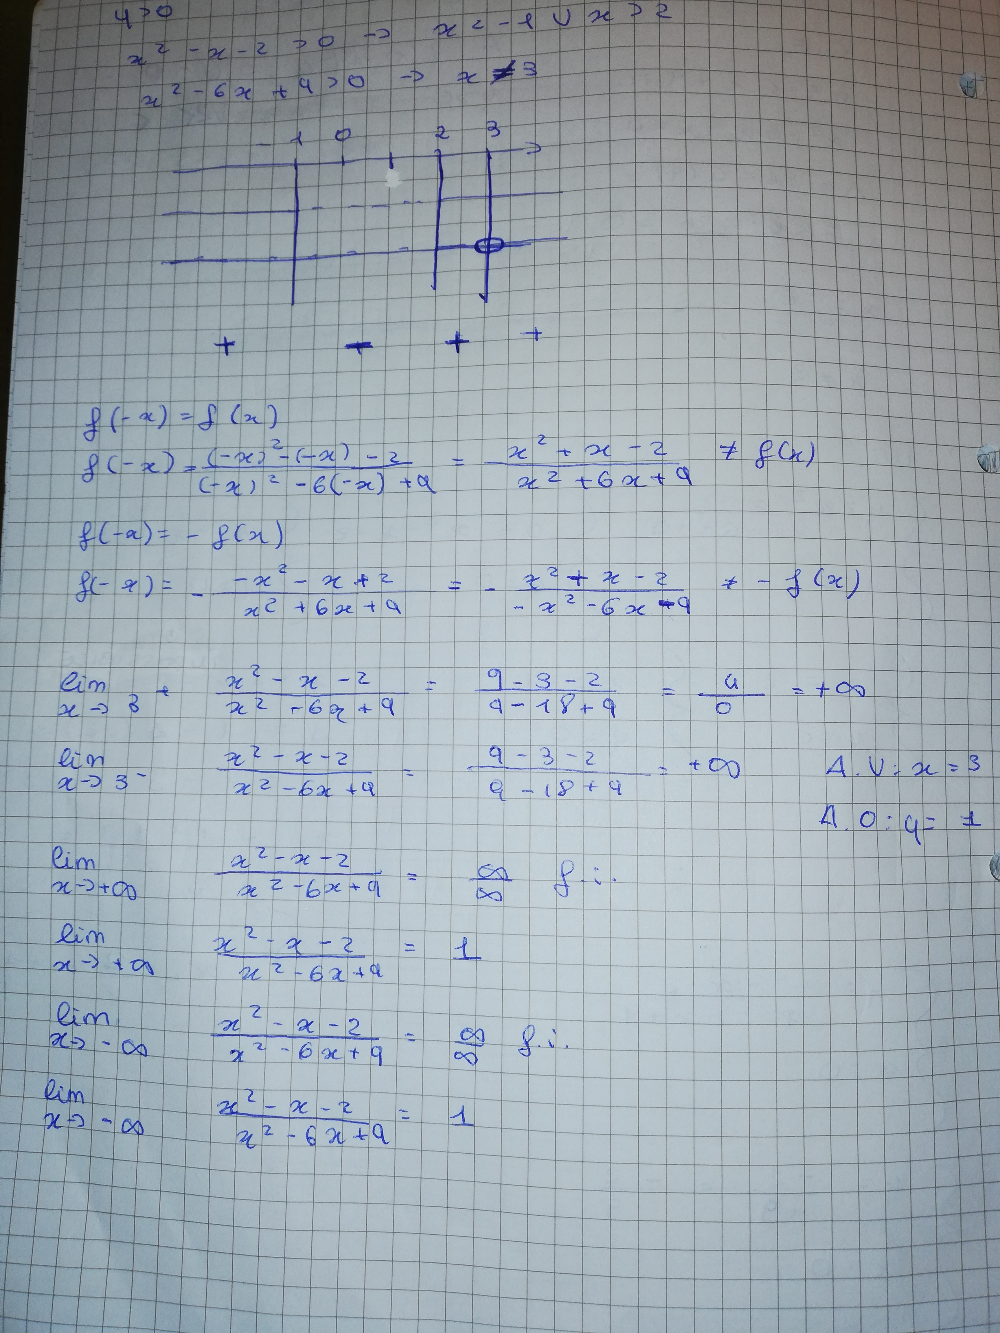 y>0
x² - x - 2 > 0 -> x < -1 ∪ x > 2
x² - 6x + 9 > 0 -> x ≠ 3
-1 0 2 3
+ - + +
f(-x) = f(x)
f(-x) = ((-x)² - (-x) - 2)/((-x)² - 6(-x) + 9) = (x² + x - 2)/(x² + 6x + 9) ≠ f(x)
f(-x) = - f(x)
f(-x) = - (-x² - x + 2)/(x² + 6x + 9) = - (x² + x - 2)/(-x² - 6x - 9) ≠ - f(x)
lim x->3⁺ (x² - x - 2)/(x² - 6x + 9) = (9 - 3 - 2)/(9 - 18 + 9) = 4/0 = +∞
lim x->3⁻ (x² - x - 2)/(x² - 6x + 9) = (9 - 3 - 2)/(9 - 18 + 9) = +∞ A.V: x = 3
A.O: y = 1
lim x->+∞ (x² - x - 2)/(x² - 6x + 9) = ∞/∞ f.i.
lim x->+∞ (x² - x - 2)/(x² - 6x + 9) = 1
lim x->-∞ (x² - x - 2)/(x² - 6x + 9) = ∞/∞ f.i.
lim x->-∞ (x² - x - 2)/(x² - 6x + 9) = 1